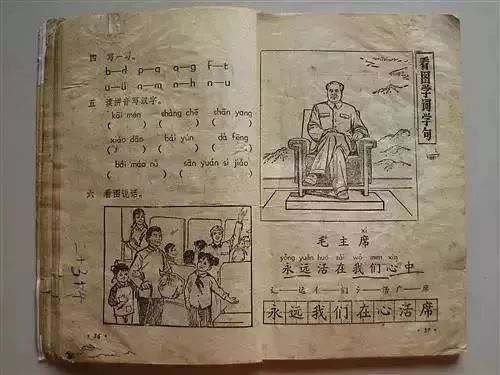 四 写一写。
b—d p—q q—g f—t
u—ü n—m n—h n—u
五 读拼音写汉字。
kāi mén shàng chē shān yang
( ) ( ) ( )
xiǎo dāo bái yún dà fēng
( ) ( ) ( )
bái máo nǚ sān yuán sì jiǎo
( ) ( )
六 看图说话。
· 36 ·
看图学词学句
xí
毛主席
yǒng yuǎn huó zài wǒ men xīn
永远活在我们心中
辶 远 亻 们 氵 活 广 席
永远我们在心活席
· 37 ·